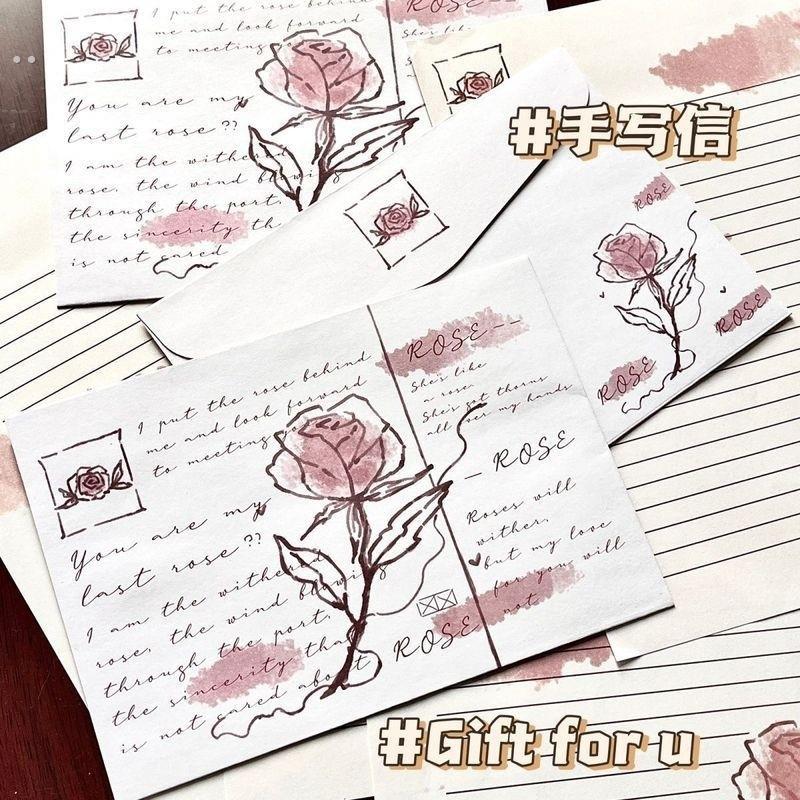 I put the rose behind
me and look forward
to meeting
You are my
last rose??
I am the withered
rose, the wind blowing
through the port,
the sincerity th
is not cared
ROSE
She's like
#手写信
ROSE
ROSE
ROSE
I put the rose behind
me and look forward
to meeting yo
You are my
last rose??
I am the withered
rose, the wind blowing
through the port,
the sincerity that
is not cared about
ROSE--
She's like
a rose.
She's got thorns
all over my hands
— ROSE
Roses will
wither,
but my love
for you will
not
ROSE
#Gift for u